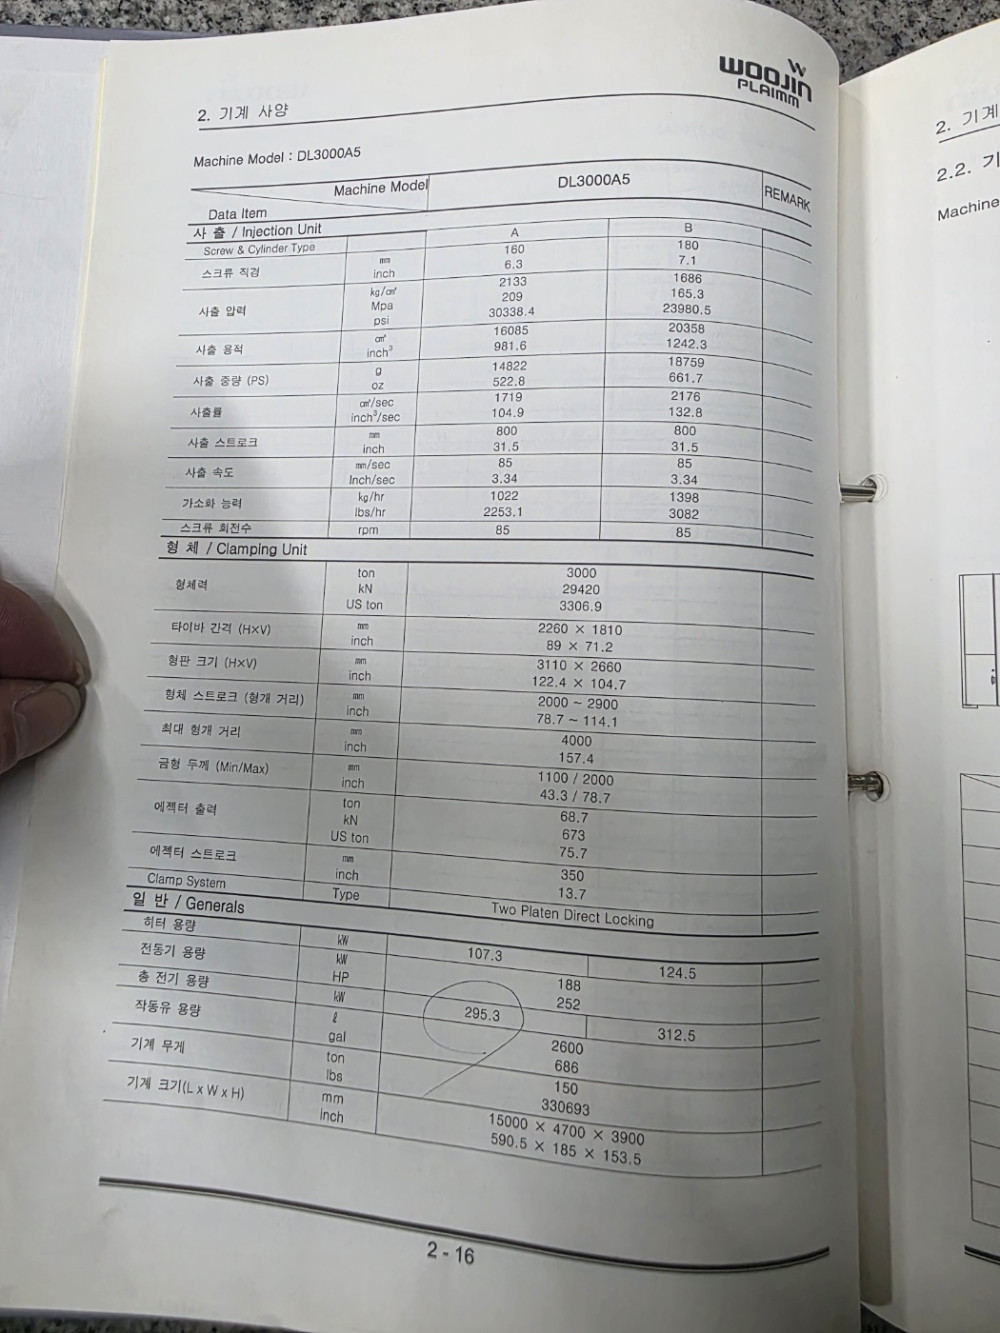 WOOJIN
PLAIMM
2. 기계 사양
Machine Model : DL3000A5
Machine Model DL3000A5 REMARK
Data Item
사 출 / Injection Unit
Screw & Cylinder Type A B
스크류 직경 mm 160 180
inch 6.3 7.1
사출 압력 kg/㎠ 2133 1686
Mpa 209 165.3
psi 30338.4 23980.5
사출 용적 ㎤ 16085 20358
inch³ 981.6 1242.3
사출 중량 (PS) g 14822 18759
oz 522.8 661.7
사출률 ㎤/sec 1719 2176
inch³/sec 104.9 132.8
사출 스트로크 mm 800 800
inch 31.5 31.5
사출 속도 mm/sec 85 85
Inch/sec 3.34 3.34
가소화 능력 kg/hr 1022 1398
lbs/hr 2253.1 3082
스크류 회전수 rpm 85 85
형 체 / Clamping Unit
형체력 ton 3000
kN 29420
US ton 3306.9
타이바 간격 (H×V) mm 2260 × 1810
inch 89 × 71.2
형판 크기 (H×V) mm 3110 × 2660
inch 122.4 × 104.7
형체 스트로크 (형개 거리) mm 2000 ~ 2900
inch 78.7 ~ 114.1
최대 형개 거리 mm 4000
inch 157.4
금형 두께 (Min/Max) mm 1100 / 2000
inch 43.3 / 78.7
에젝터 출력 ton 68.7
kN 673
US ton 75.7
에젝터 스트로크 mm 350
inch 13.7
Clamp System Type Two Platen Direct Locking
일 반 / Generals
히터 용량 kW 107.3 124.5
전동기 용량 kW 188
HP 252
총 전기 용량 kW 295.3 312.5
작동유 용량 ℓ 2600
gal 686
기계 무게 ton 150
lbs 330693
기계 크기(L x W x H) mm 15000 × 4700 × 3900
inch 590.5 × 185 × 153.5
2 - 16
2. 기계
2.2. 기
Machine